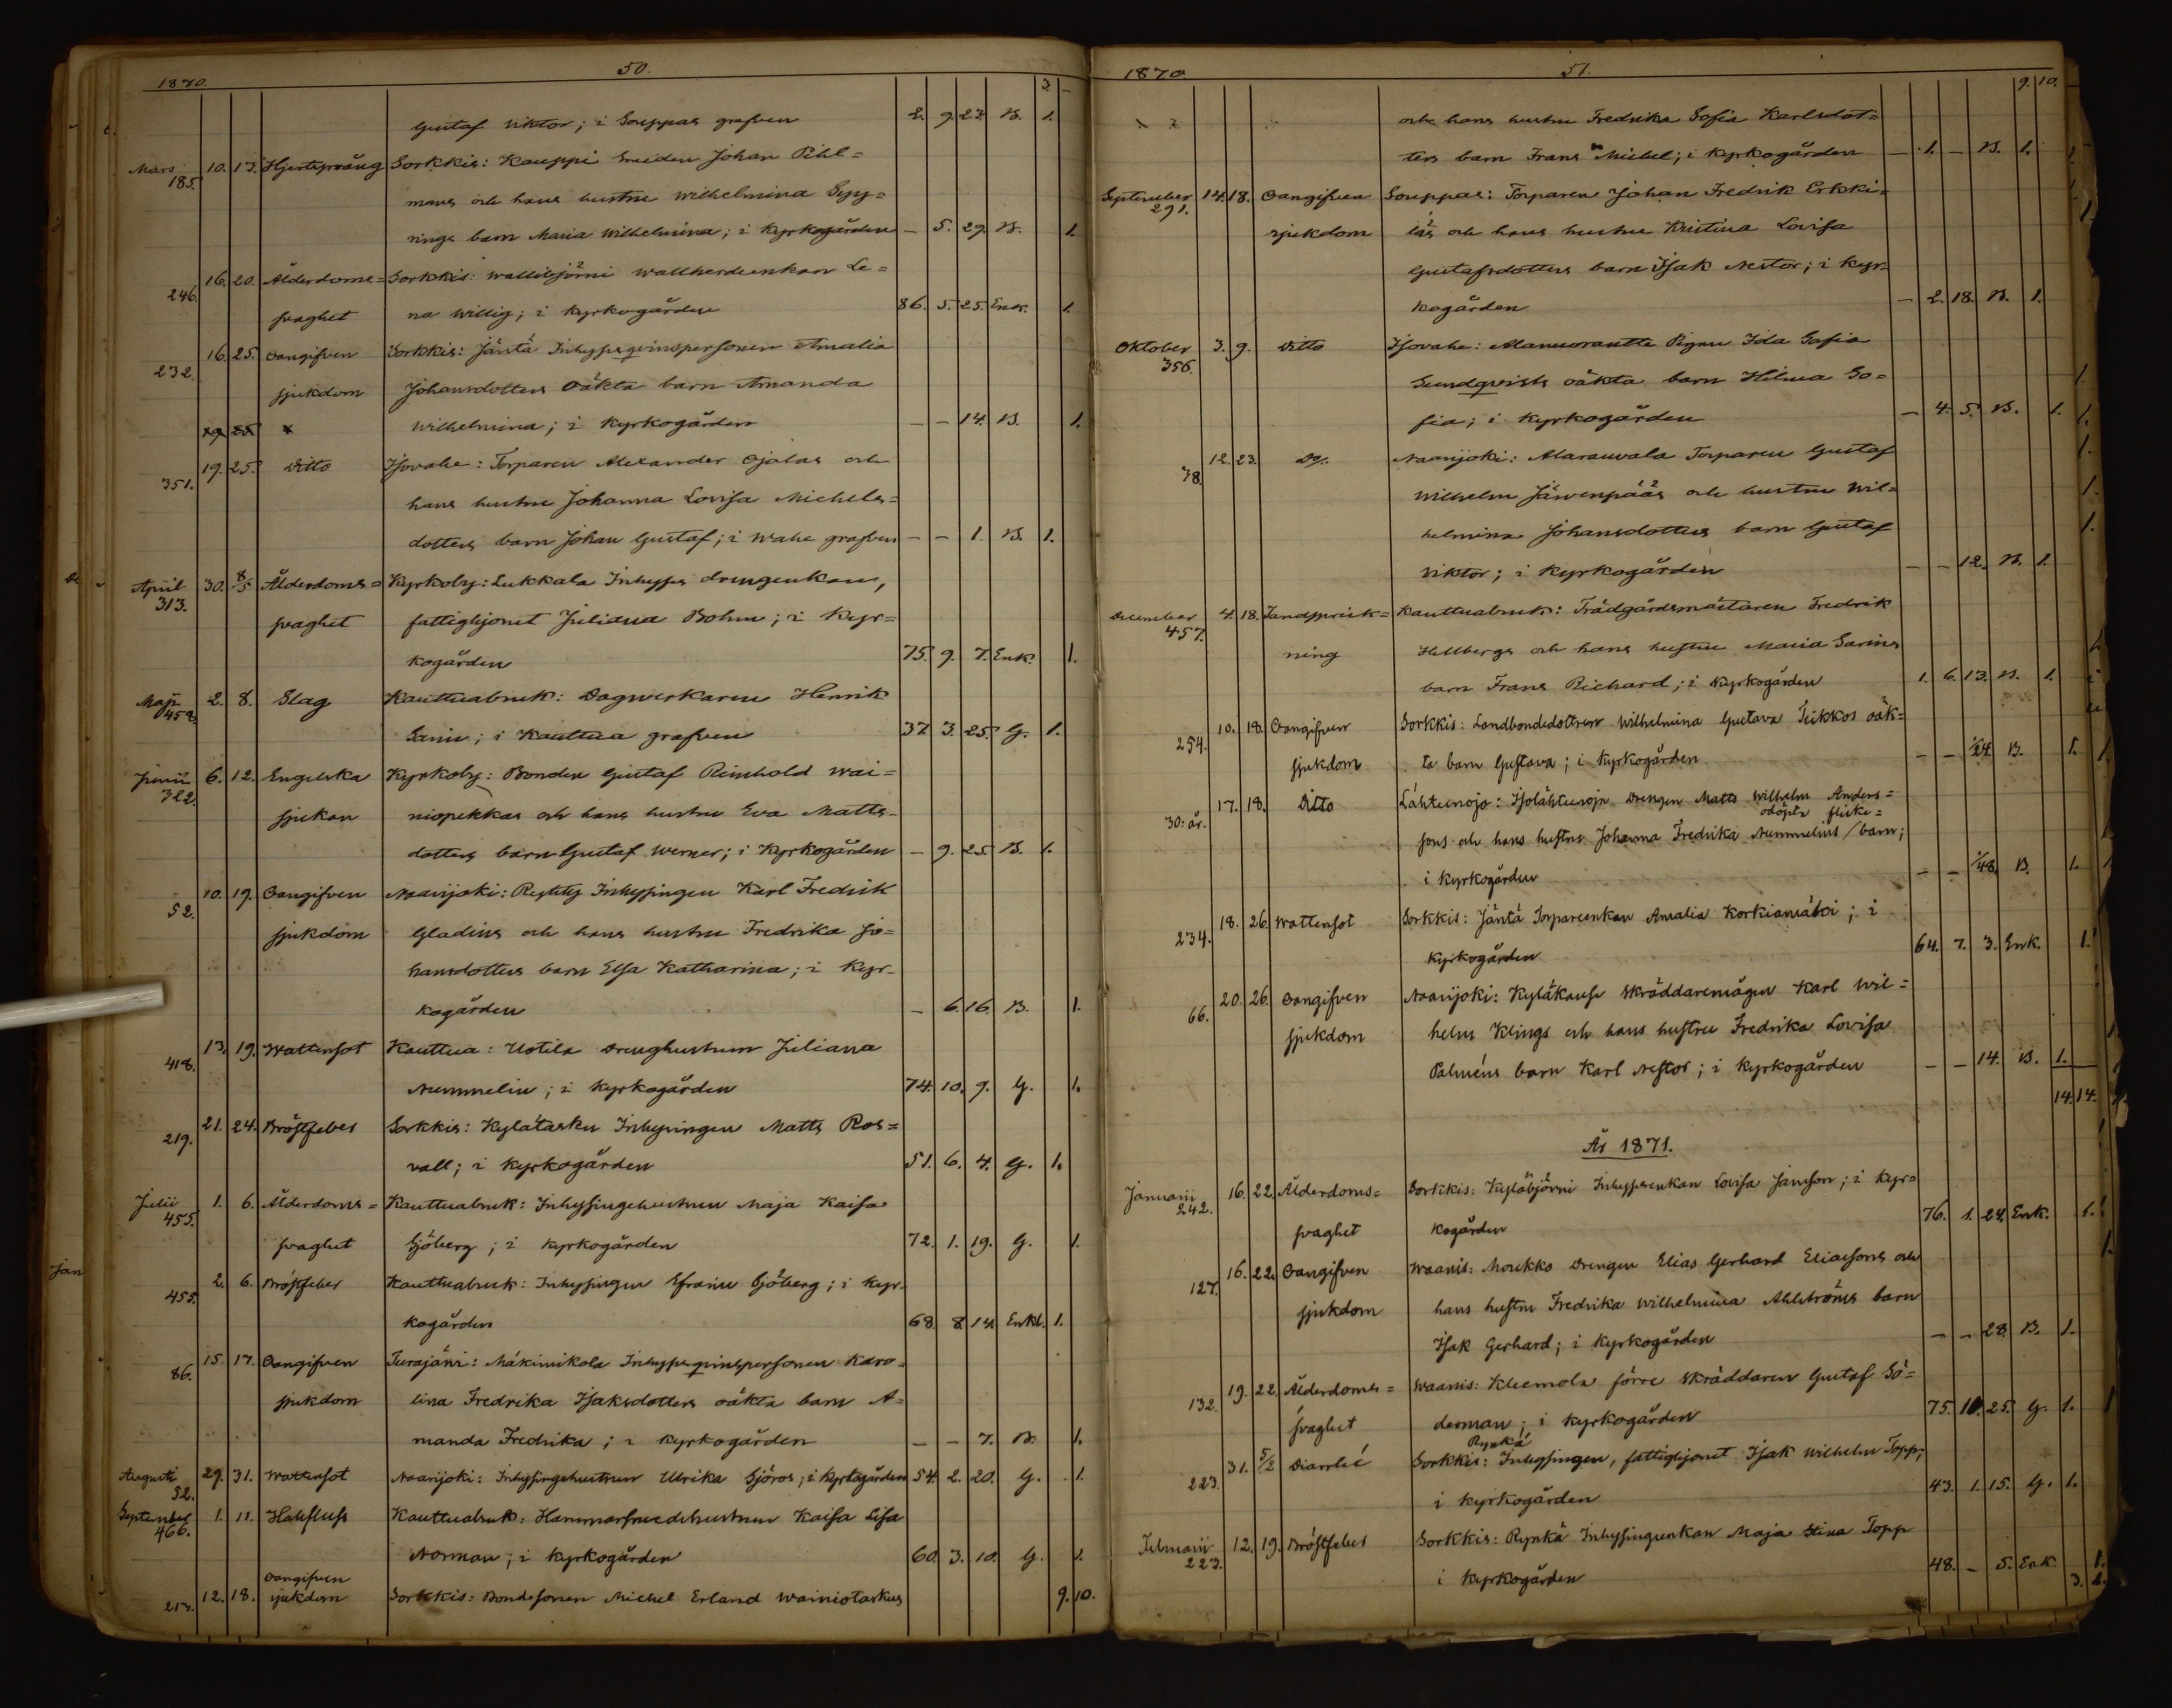 1870. 50.
3. –
Gustaf Viktor; i Souppas grafven 2. 9. 27. B. 1.
Mars 185. 10. 13. Hjertsprång Sorkkis: Kauppi Smeden Johan Pihl=
mans och hans hustru Wilhelmina
rings barn Maria Wilhelmina; i Kyrkogården – 5. 29. B. 1.
246. 16. 20. Ålderdoms= Sorkkis: Wallibjörni Wallherdeenkan Le=
svaghet na Willig; i Kyrkogården 86. 5. 25. Enk. 1.
232. 16. 25. Oangifven Sorkkis: Jäntä Inhyseqvinspersonen Amalia
sjukdom Johansdotters Oäkta barn Amanda
Wilhelmina; i Kyrkogården – – 14. B. 1.
351. 19. 25. Ditto Isovahe: Torparen Alexander Ojalas och
hans hustru Johanna Lovisa Michels=
dotters barn Johan Gustaf; i Wahe grafven – – 1. B. 1.
April 313. 30. 8/5 Ålderdoms= Kyrkoby: Lukkala Inhyses drengenkan,
svaghet fattighjonet Juliana Bohm; i Kyr=
kogården 75. 9. 7. Enk. 1.
Maji 458. 2. 8. Slag Kauttuabruk: Dagverkaren Henrik
Sanin; i Kauttua grafven 37. 3. 25. G. 1.
Junii 322. 6. 12. Engelska Kyrkoby: Bonden Gustaf Reinhold Wai=
sjukan niopekkas och hans hustru Eva Matts=
dotters barn Gustaf Werner; i Kyrkogården – 9. 25. B. 1.
52. 10. 19. Oangifven Naarijoki: Inhysingen Karl Fredrik
sjukdom Gladins och hans hustru Fredrika Jo=
hansdotters barn Elsa Katharina; i Kyr=
kogården – 6. 16. B. 1.
418. 13. 19. Wattensot Kauttua: Uotila Drenghustrun Juliana
Nummelin; i Kyrkogården 74. 10. 9. G. 1.
219. 21. 24. Bröstfeber Sorkkis: Kylätasku Inhysingen Matts Ros=
vall; i Kyrkogården 51. 6. 4. G. 1.
Julii 455. 1. 6. Ålderdoms= Kauttuabruk: Inhysingehustrun Maja Kaisa
svaghet Sjöberg; i Kyrkogården 72. 1. 19. G. 1.
455. 2. 6. Bröstfeber Kauttuabruk: Inhysingen Efraim Sjöberg; i Kyr=
kogården 68. 8. 14. Enkl. 1.
86. 15. 17. Oangifven Turajärvi: Mäkimikola Inhyseqvinspersonen Karo=
sjukdom lina Fredrika Isaksdotters oäkta barn A=
manda Fredrika; i Kyrkogården – – 7. B. 1.
Augusti 52. 29. 31. Wattensot Naarijoki: Inhysingehustrun Ulrika Sjöros; i Kyrkogården 54. 2. 20. G. 1.
September 466. 1. 11. Halsfluss Kauttuabruk: Hammarsmedshustrun Kaisa Lisa
Norman; i Kyrkogården 60. 3. 10. G. 1.
Oangifven
12. 18. sjukdom Sorkkis: Bondesonen Michel Erland Wainiotaskus
9. 10.
1870 51.
9. 10.
och hans hustru Fredrika Sofia Karlsdot=
ters barn Frans Michel; i Kyrkogården – 1. – B. 1.
September 291. 14. 18. Oangifven Souppas: Torparen Johan Fredrik Erkki=
sjukdom läs och hans hustru Kristina Lovisa
Gustafsdotters barn Isak Nestor; i Kyr=
kogården – 2. 18. B. 1.
Oktober 356. 3. 9. Ditto Isovahe: Alanuorautte Pigan Ida Sofia
Sundqvists oäkta barn Hilma So=
fia; i Kyrkogården – 4. 5. B. 1.
38. 12. 23. Do. Naarijoki: Alarauvala Torparen Gustaf
Wilhelm Järvenpääs och hustru Wil=
helmina Johansdotters barn Gustaf
Viktor; i Kyrkogården – – 12. B. 1.
December 457. 4. 18. Tandsprick= Kauttuabruk: Trädgårdsmästaren Fredrik
ning Hellbergs och hans hustru Maria Sarins
barn Frans Richard; i Kyrkogården 1. 6. 13. B. 1.
254. 10. 18. Oangifven Sorkkis: Landbondedottren Wilhelmina Gustava Tuikkos oäk=
sjukdom ta barn Gustava; i Kyrkogården – – 1/24. B. 1.
30: år. 17. 18. Ditto Lähtenoja: Isolähtenoja Drengen Matts Wilhelm Anders=
odöpta flicke=
sons och hans hustru Johanna Fredrika Nummelins / barn;
i Kyrkogården – – 1/48. B. 1.
234. 18. 26. Wattensot Sorkkis: Jäntä Torpareenkan Amalia Korkiamäki; i
Kyrkogården 64. 7. 3. Enk. 1.
66. 20. 26. Oangifven Naarijoki: Kyläkause Skräddaremågen Karl Wil=
sjukdom helm Klings och hans hustru Fredrika Lovisa
Palméns barn Karl Nestor; i Kyrkogården – – 14. B. 1.
14. 14.
År 1871.
Januarii 242. 16. 22. Ålderdoms= Sorkkis: Kyläbjörni Inhysesenkan Lovisa Jansson; i Kyr=
svaghet kogården 76. 1. 24. Enk. 1.
127. 16. 22. Oangifven Waanis: Moukko Drengen Elias Gerhard Eliassons och
sjukdom hans hustru Fredrika Wilhelmina Ahlströms barn
Isak Gerhard; i Kyrkogården – – 28. B. 1.
132. 19. 22. Ålderdoms= Waanis: Kleemola förre Skräddaren Gustaf Sö=
svaghet derman; i Kyrkogården 75. 10. 25. G. 1.
Rynkä
223. 31. 5/2 Diarrhé Sorkkis: Inhysingen, fattighjonet Isak Wilhelm Topp;
i Kyrkogården 43. 1. 15. G. 1.
Februarii 223. 12. 19. Bröstfeber Sorkkis: Rynkä Inhysingeenkan Maja Stina Topp
i Kyrkogården 48. – 5. Enk. 1.
3.